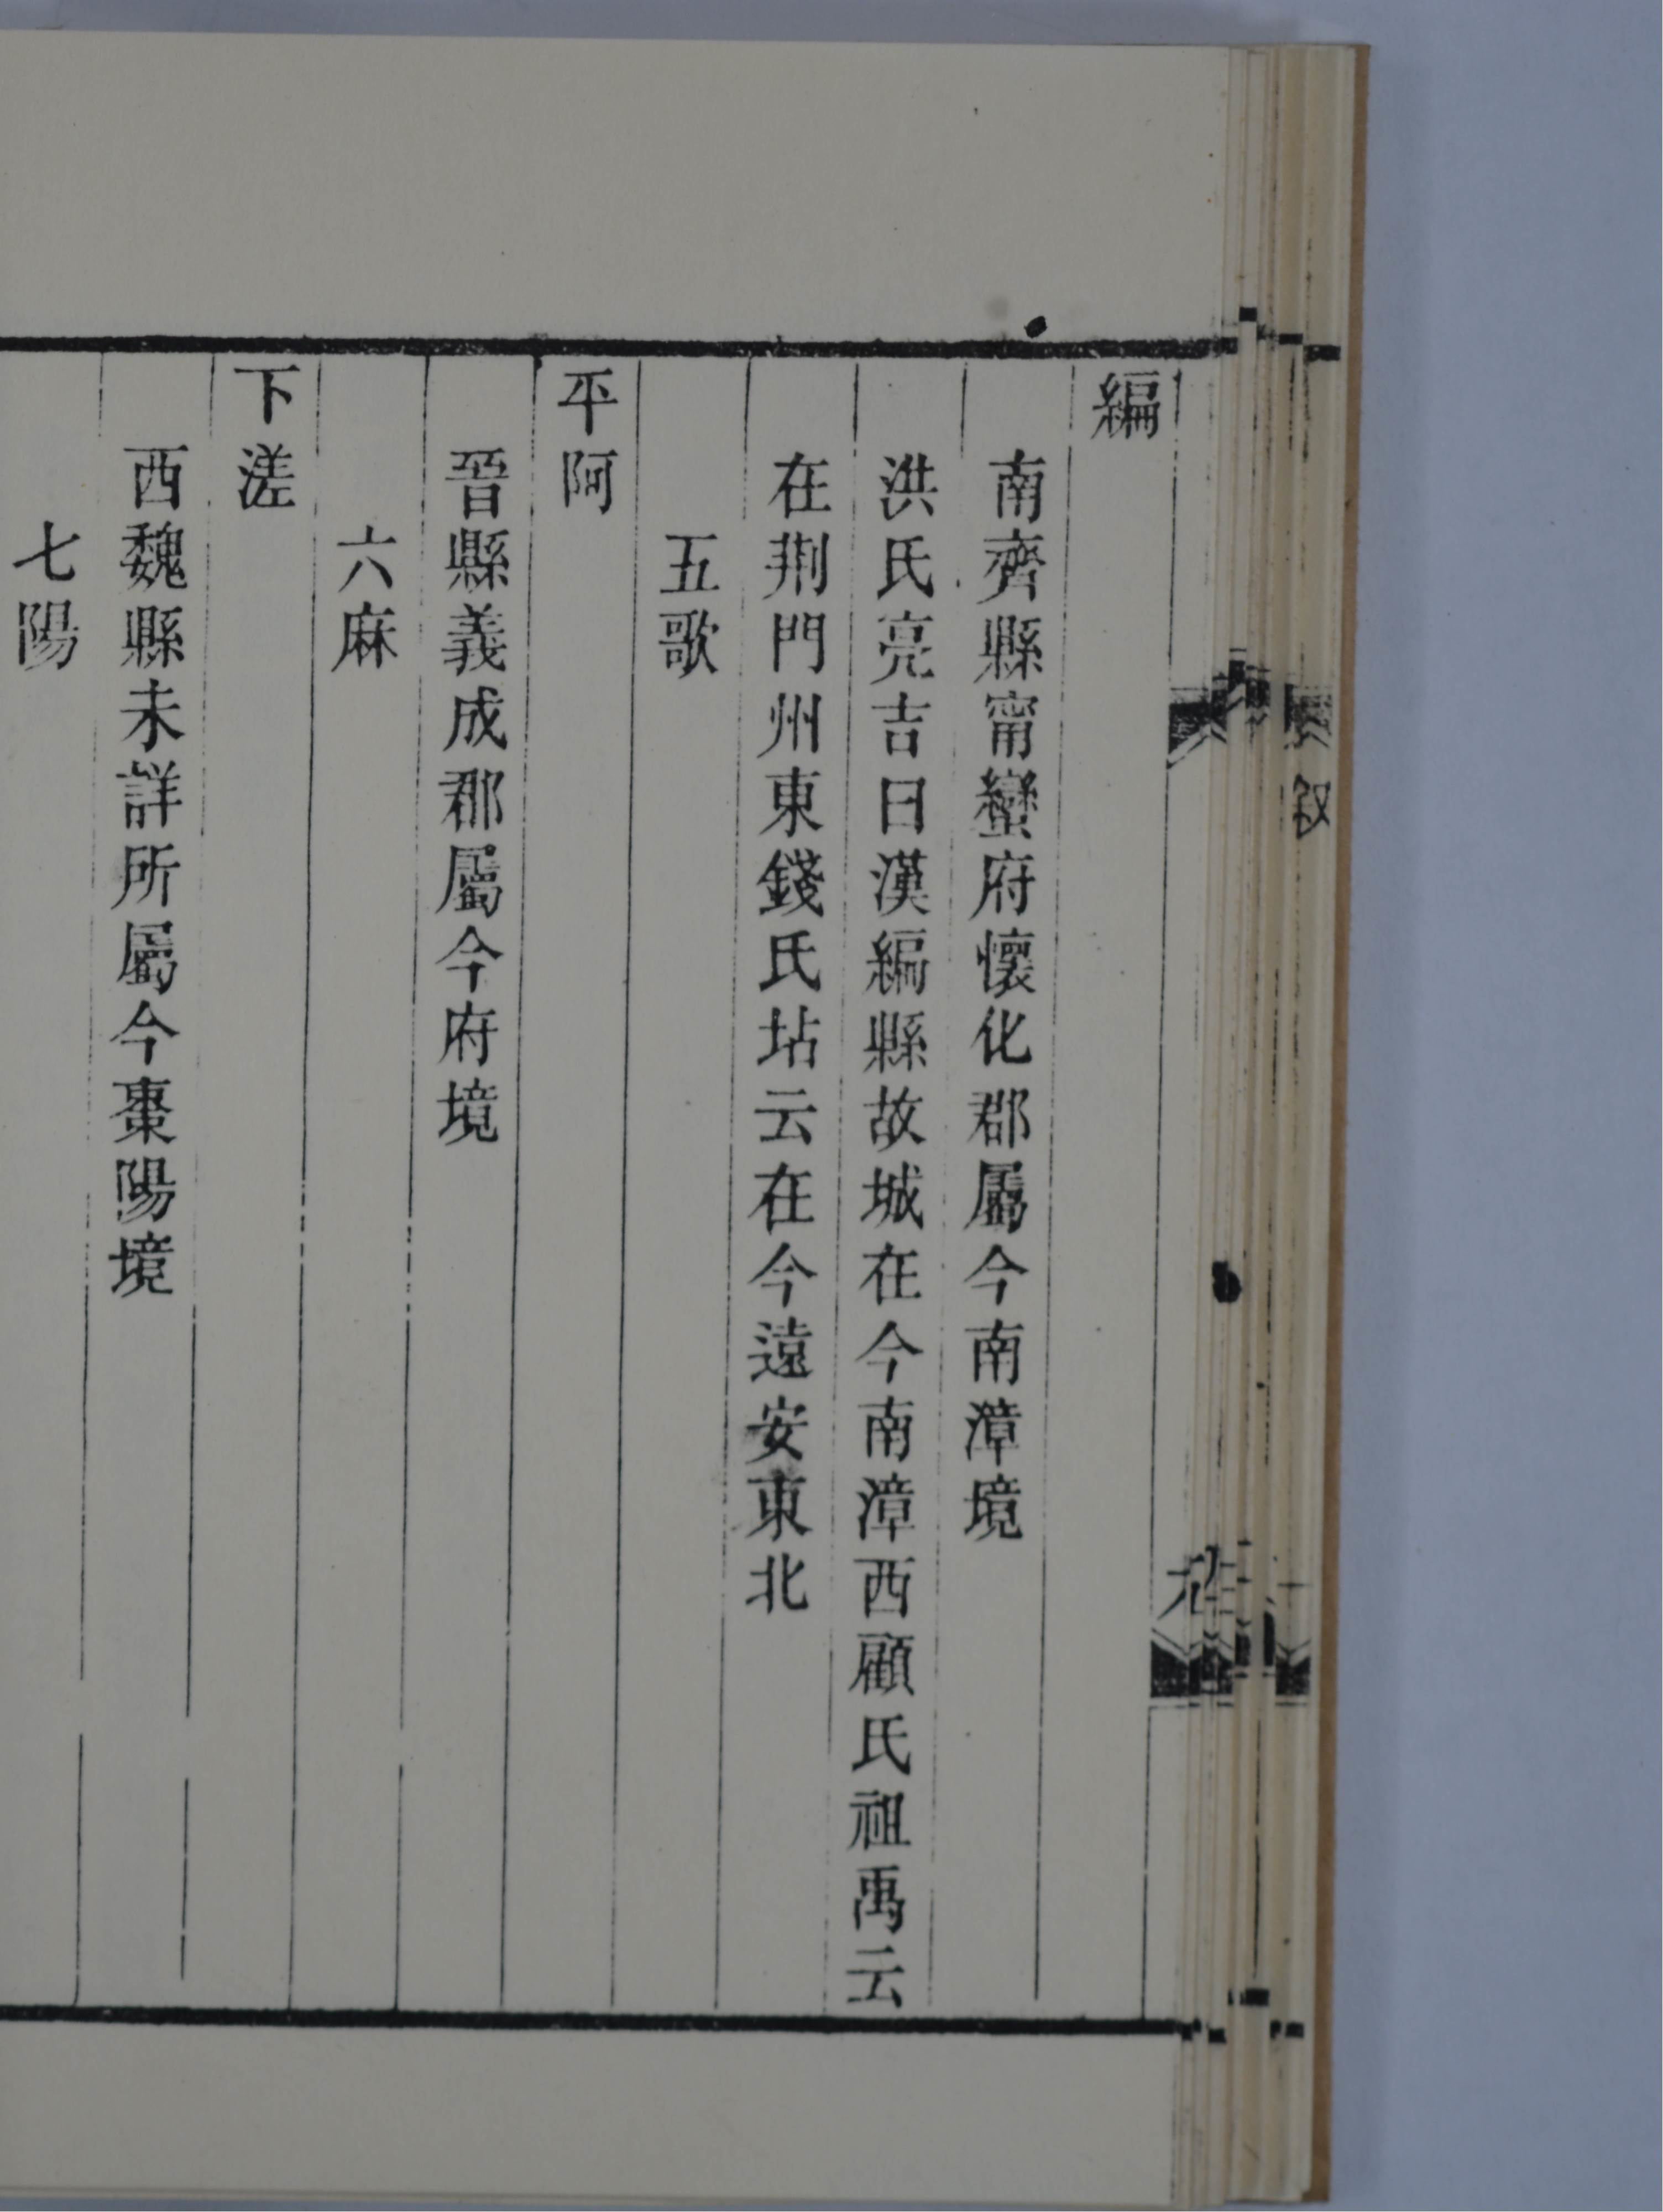 編
南齊縣甯蠻府懷化郡屬今南漳境
洪氏亮吉曰漢編縣故城在今南漳西顧氏祖禹云
在荆門州東錢氏坫云在今遠安東北
五歌
平阿
晉縣義成郡屬今府境
六麻
下溠
西魏縣未詳所屬今棗陽境
七陽